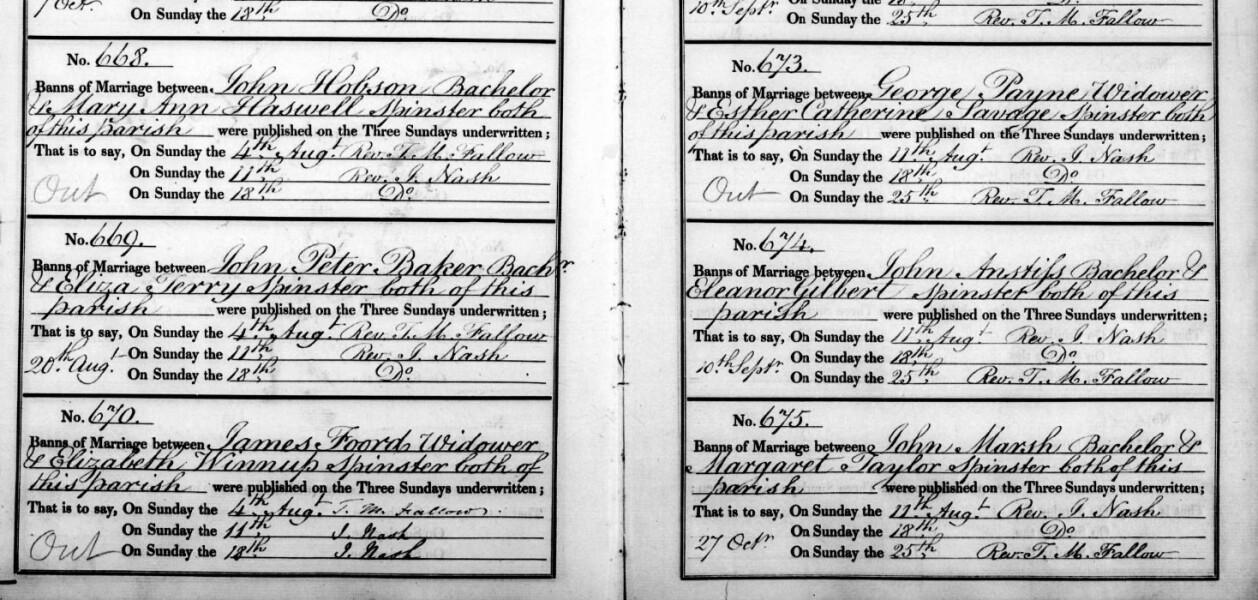 7 Octr On Sunday the 18th Do
No. 668.
Banns of Marriage between John Hobson Bachelor
& Mary Ann Haswell Spinster both
of this parish were published on the Three Sundays underwritten;
That is to say, On Sunday the 4th Augt Rev. T. M. Fallow
On Sunday the 11th Rev. J. Nash
Out On Sunday the 18th Do
No. 669.
Banns of Marriage between John Peter Baker Bachr
& Eliza Terry Spinster both of this
parish were published on the Three Sundays underwritten;
That is to say, On Sunday the 4th Augt Rev. T. M. Fallow
20th Augt On Sunday the 11th Rev. J. Nash
On Sunday the 18th Do
No. 670.
Banns of Marriage between James Foord Widower
& Elizabeth Winnup Spinster both of
this parish were published on the Three Sundays underwritten;
That is to say, On Sunday the 4th Augt T. M. Fallow
On Sunday the 11th J. Nash
Out On Sunday the 18th J. Nash
10th Septr
On Sunday the 25th Rev. T. M. Fallow
No. 673.
Banns of Marriage between George Payne Widower
& Esther Catherine Savage Spinster both
of this parish were published on the Three Sundays underwritten;
That is to say, On Sunday the 11th Augt Rev. J. Nash
On Sunday the 18th Do
Out On Sunday the 25th Rev. T. M. Fallow
No. 674.
Banns of Marriage between John Anstiss Bachelor &
Eleanor Gilbert Spinster both of this
parish were published on the Three Sundays underwritten;
That is to say, On Sunday the 11th Augt Rev. J. Nash
On Sunday the 18th Do
10th Septr On Sunday the 25th Rev. T. M. Fallow
No. 675.
Banns of Marriage between John Marsh Bachelor &
Margaret Taylor Spinster both of this
parish were published on the Three Sundays underwritten;
That is to say, On Sunday the 11th Augt Rev. J. Nash
On Sunday the 18th Do
27 Octr On Sunday the 25th Rev. T. M. Fallow